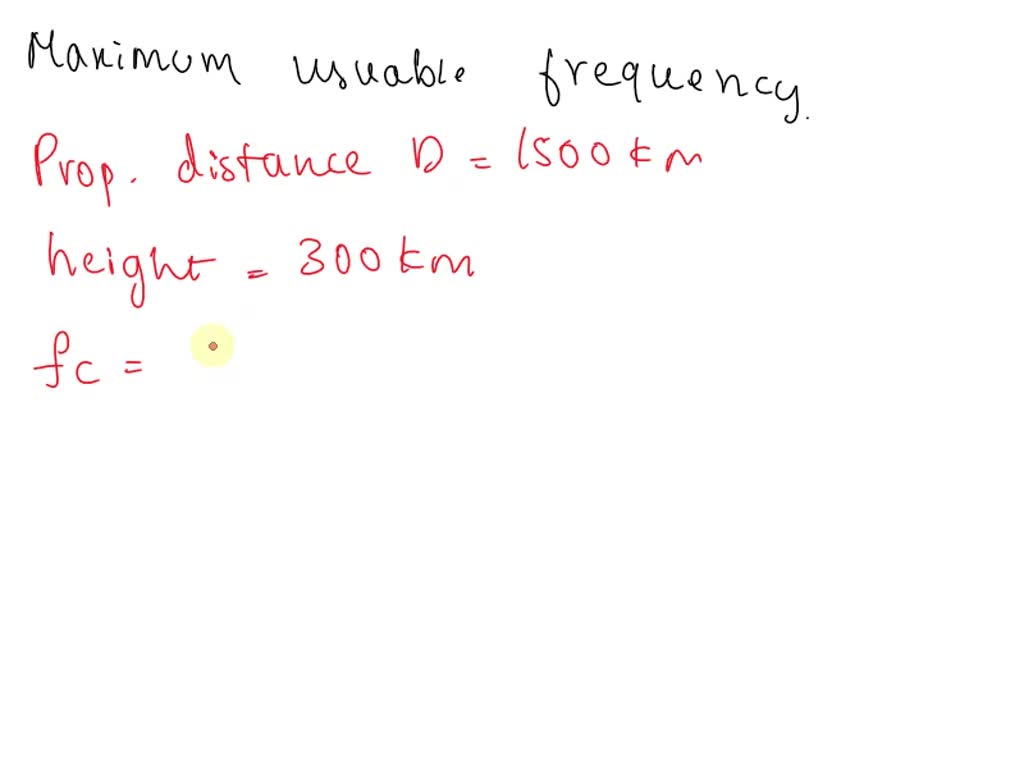 Maximum usuable frequency.
Prop. distance D = 1500 km
height = 300 km
fc =